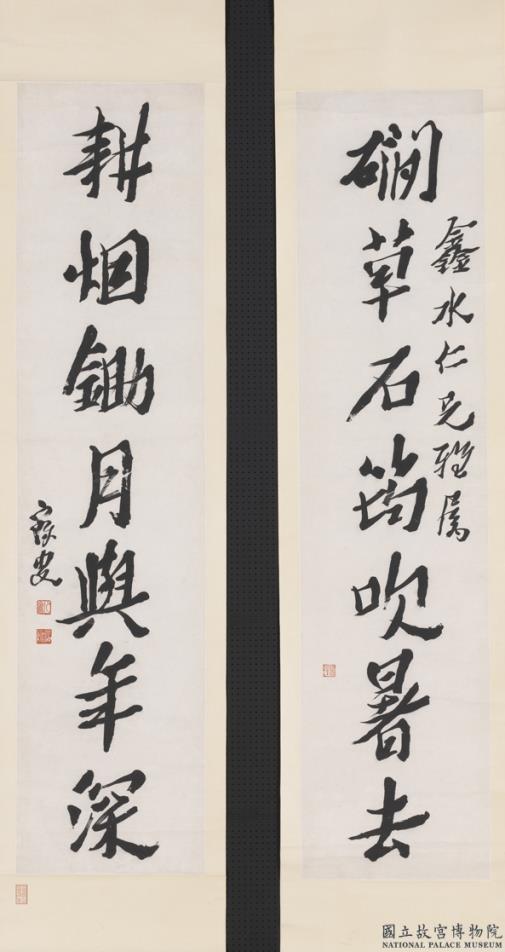 磵草石筠吹暑去
鑫水仁兄雅属
耕烟鋤月與年深
寐叟
國立故宮博物院
NATIONAL PALACE MUSEUM